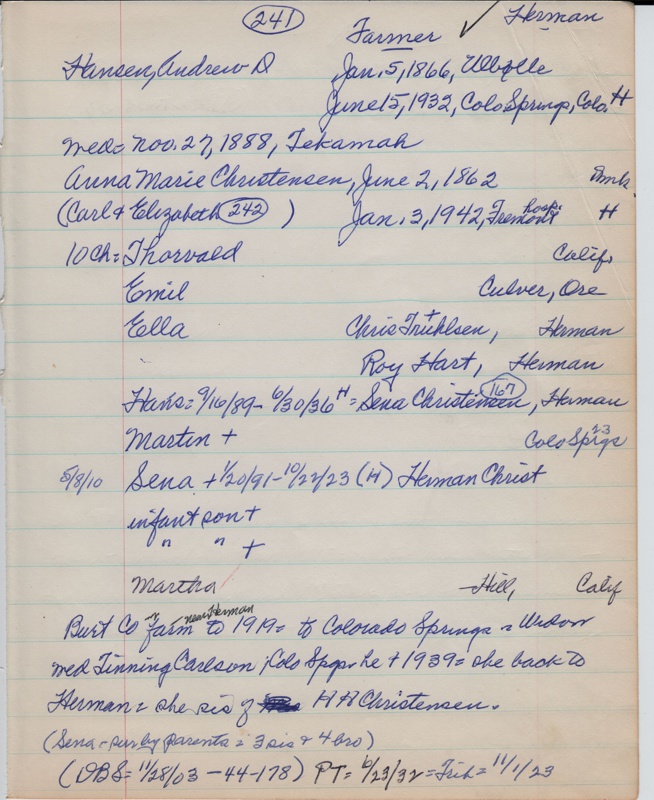 241
Farmer ✓ Herman
Hansen, Andrew D Jan. 5, 1866,
June 15, 1932, Colo Springs, Colo. H
med = Nov. 27, 1888, Tekamah
Anna Marie Christensen, June 2, 1862 Dmk
(Carl & Elizabeth 242 ) Jan. 3, 1942, Fremont hosp. H
10 Ch = Thorvald Calif.
Emil Culver, Ore
Ella Chris Truhlsen +, Herman
Roy Hart, Herman
Hans = 9/16/89 - 6/30/36 H = Sena Christensen 167, Herman
Martin + Colo Spgs 23
5/8/10 Sena + 1/20/91 - 10/22/23 (H) Herman Christ
infant son +
" " +
Martha Hill, Calif
Burt Co farm near Herman to 1919 = to Colorado Springs = Widow
med Tinning Carlson, Colo Spgs. he + 1939 = she back to
Herman = she sis of H H Christensen.
(Sena - sur by parents = 3 sis & 4 bro)
(DBS = 11/28/03 - 44-178) PT = 6/23/32 = Trib = 11/1/23